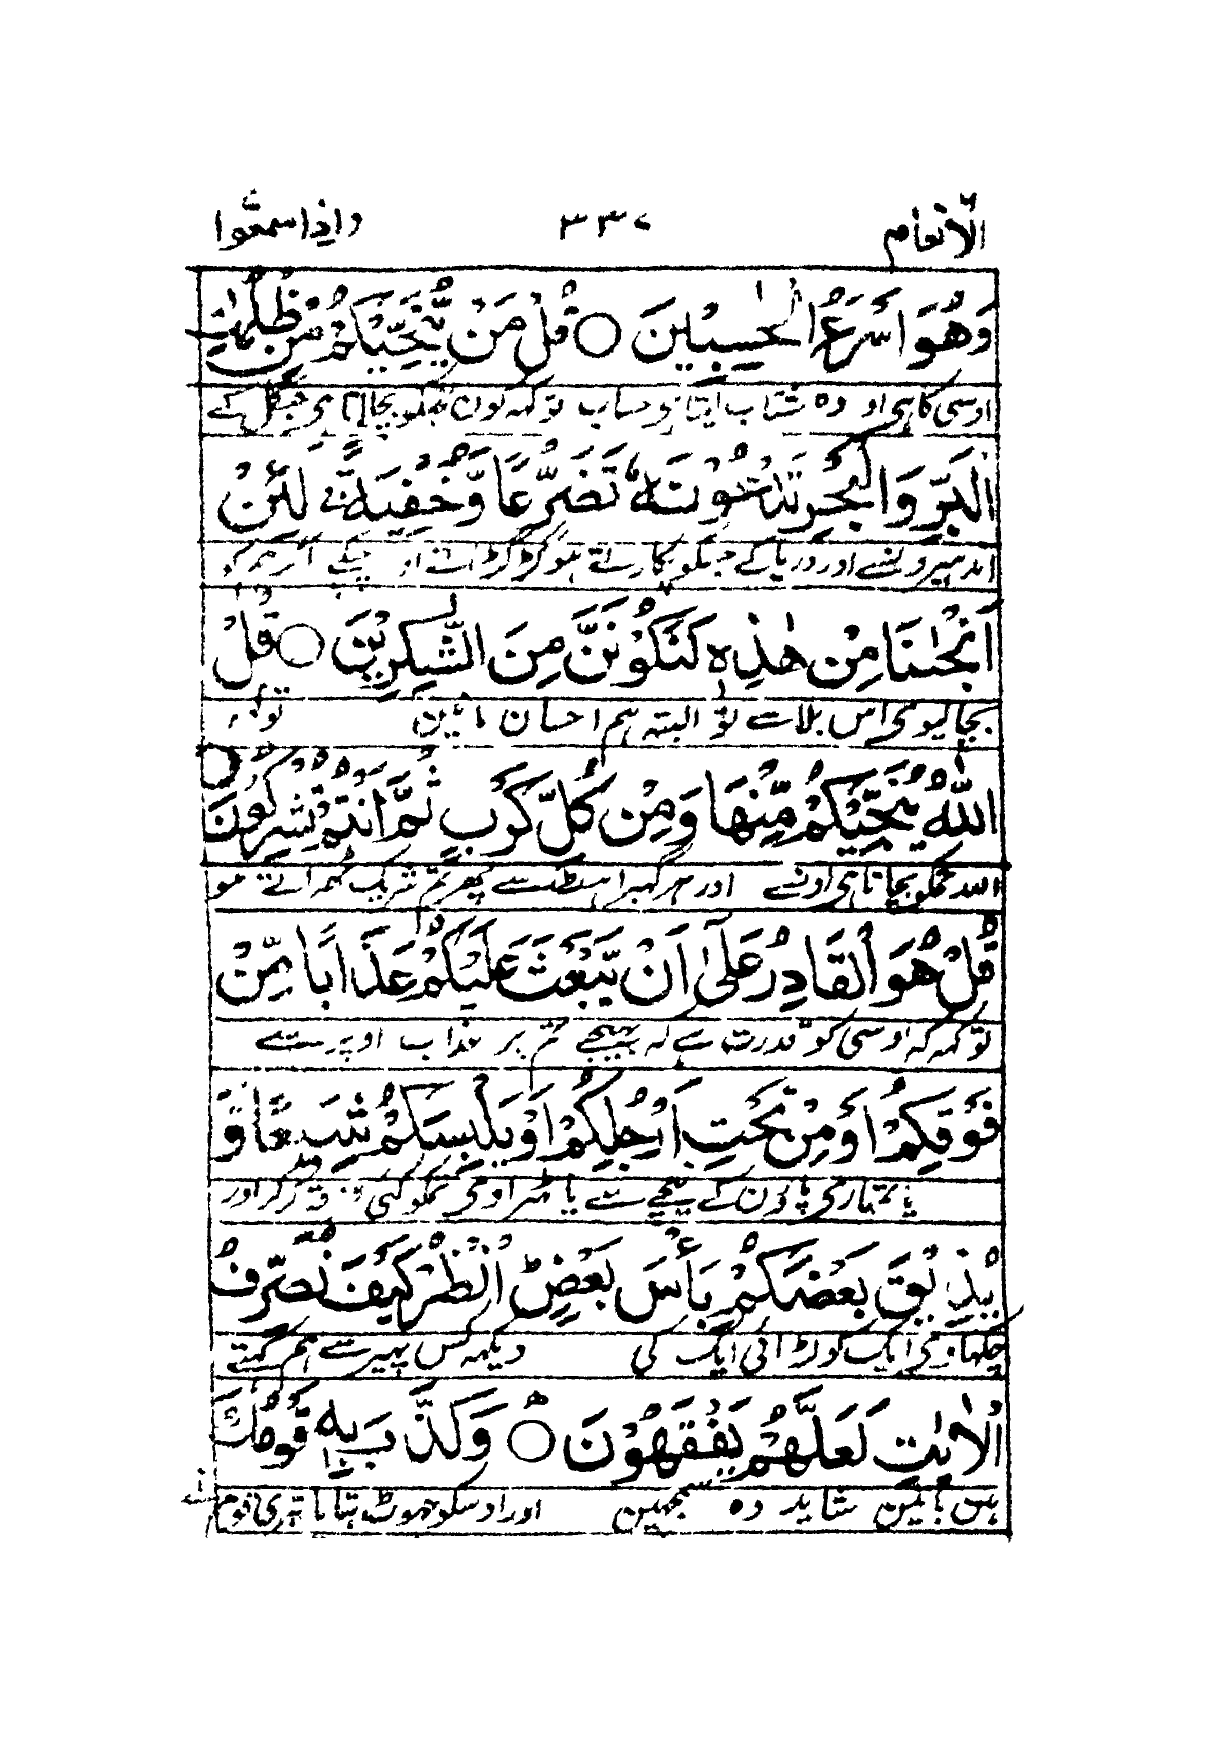 الانعام ٣٣٧ واذا سمعوا
وَهُوَ اَسْرَعُ الْحٰسِبِيْنَ ○ قُلْ مَنْ يُّنَجِّيْكُمْ مِّنْ ظُلُمٰتِ
اوسی کا ہی او وہ شتاب لیتا ہی حساب تو کہہ کون تمکو بچا لاتا ہی جنگل کے
الْبَرِّ وَالْبَحْرِ تَدْعُوْنَهٗ تَضَرُّعًا وَّخُفْيَةً لَئِنْ
اندہیرونسے اور دریا کے جسکو پکارتے ہو گڑگڑاتے او چپکے اگر ہم کو
اَنْجٰىنَا مِنْ هٰذِهٖ لَنَكُوْنَنَّ مِنَ الشّٰكِرِيْنَ ○ قُلْ
بچا لیوی اس بلا سے تو البتہ ہم احسان مانین تو
اللّٰهُ يُنَجِّيْكُمْ مِّنْهَا وَمِنْ كُلِّ كَرْبٍ ثُمَّ اَنْتُمْ تُشْرِكُوْنَ ○
اللہ تمکو بچاتا ہی اونسے اور ہر گہبراہٹ سے پہر تم شریک ٹہراتے ہو
قُلْ هُوَ الْقَادِرُ عَلٰٓى اَنْ يَّبْعَثَ عَلَيْكُمْ عَذَابًا مِّنْ
تو کہہ کہ اوسی کو قدرت ہے کہ بہیجے تم پر عذاب اوپر سے
فَوْقِكُمْ اَوْ مِنْ تَحْتِ اَرْجُلِكُمْ اَوْ يَلْبِسَكُمْ شِيَعًا وَّ
یا تمہاری پاؤن کے نیچے سے یا ٹہراوی تمکو کئی فرقہ کر اور
يُذِيْقَ بَعْضَكُمْ بَأْسَ بَعْضٍ اُنْظُرْ كَيْفَ نُصَرِّفُ
چکہاوی ایک کو لڑائی ایک کی دیکہہ کس پہیر سے ہم کہتے
الْاٰيٰتِ لَعَلَّهُمْ يَفْقَهُوْنَ ○ وَكَذَّبَ بِهٖ قَوْمُكَ
ہین باتین شاید وہ سمجہین اور اوسکو جہوٹ بتایا تیری قوم نے